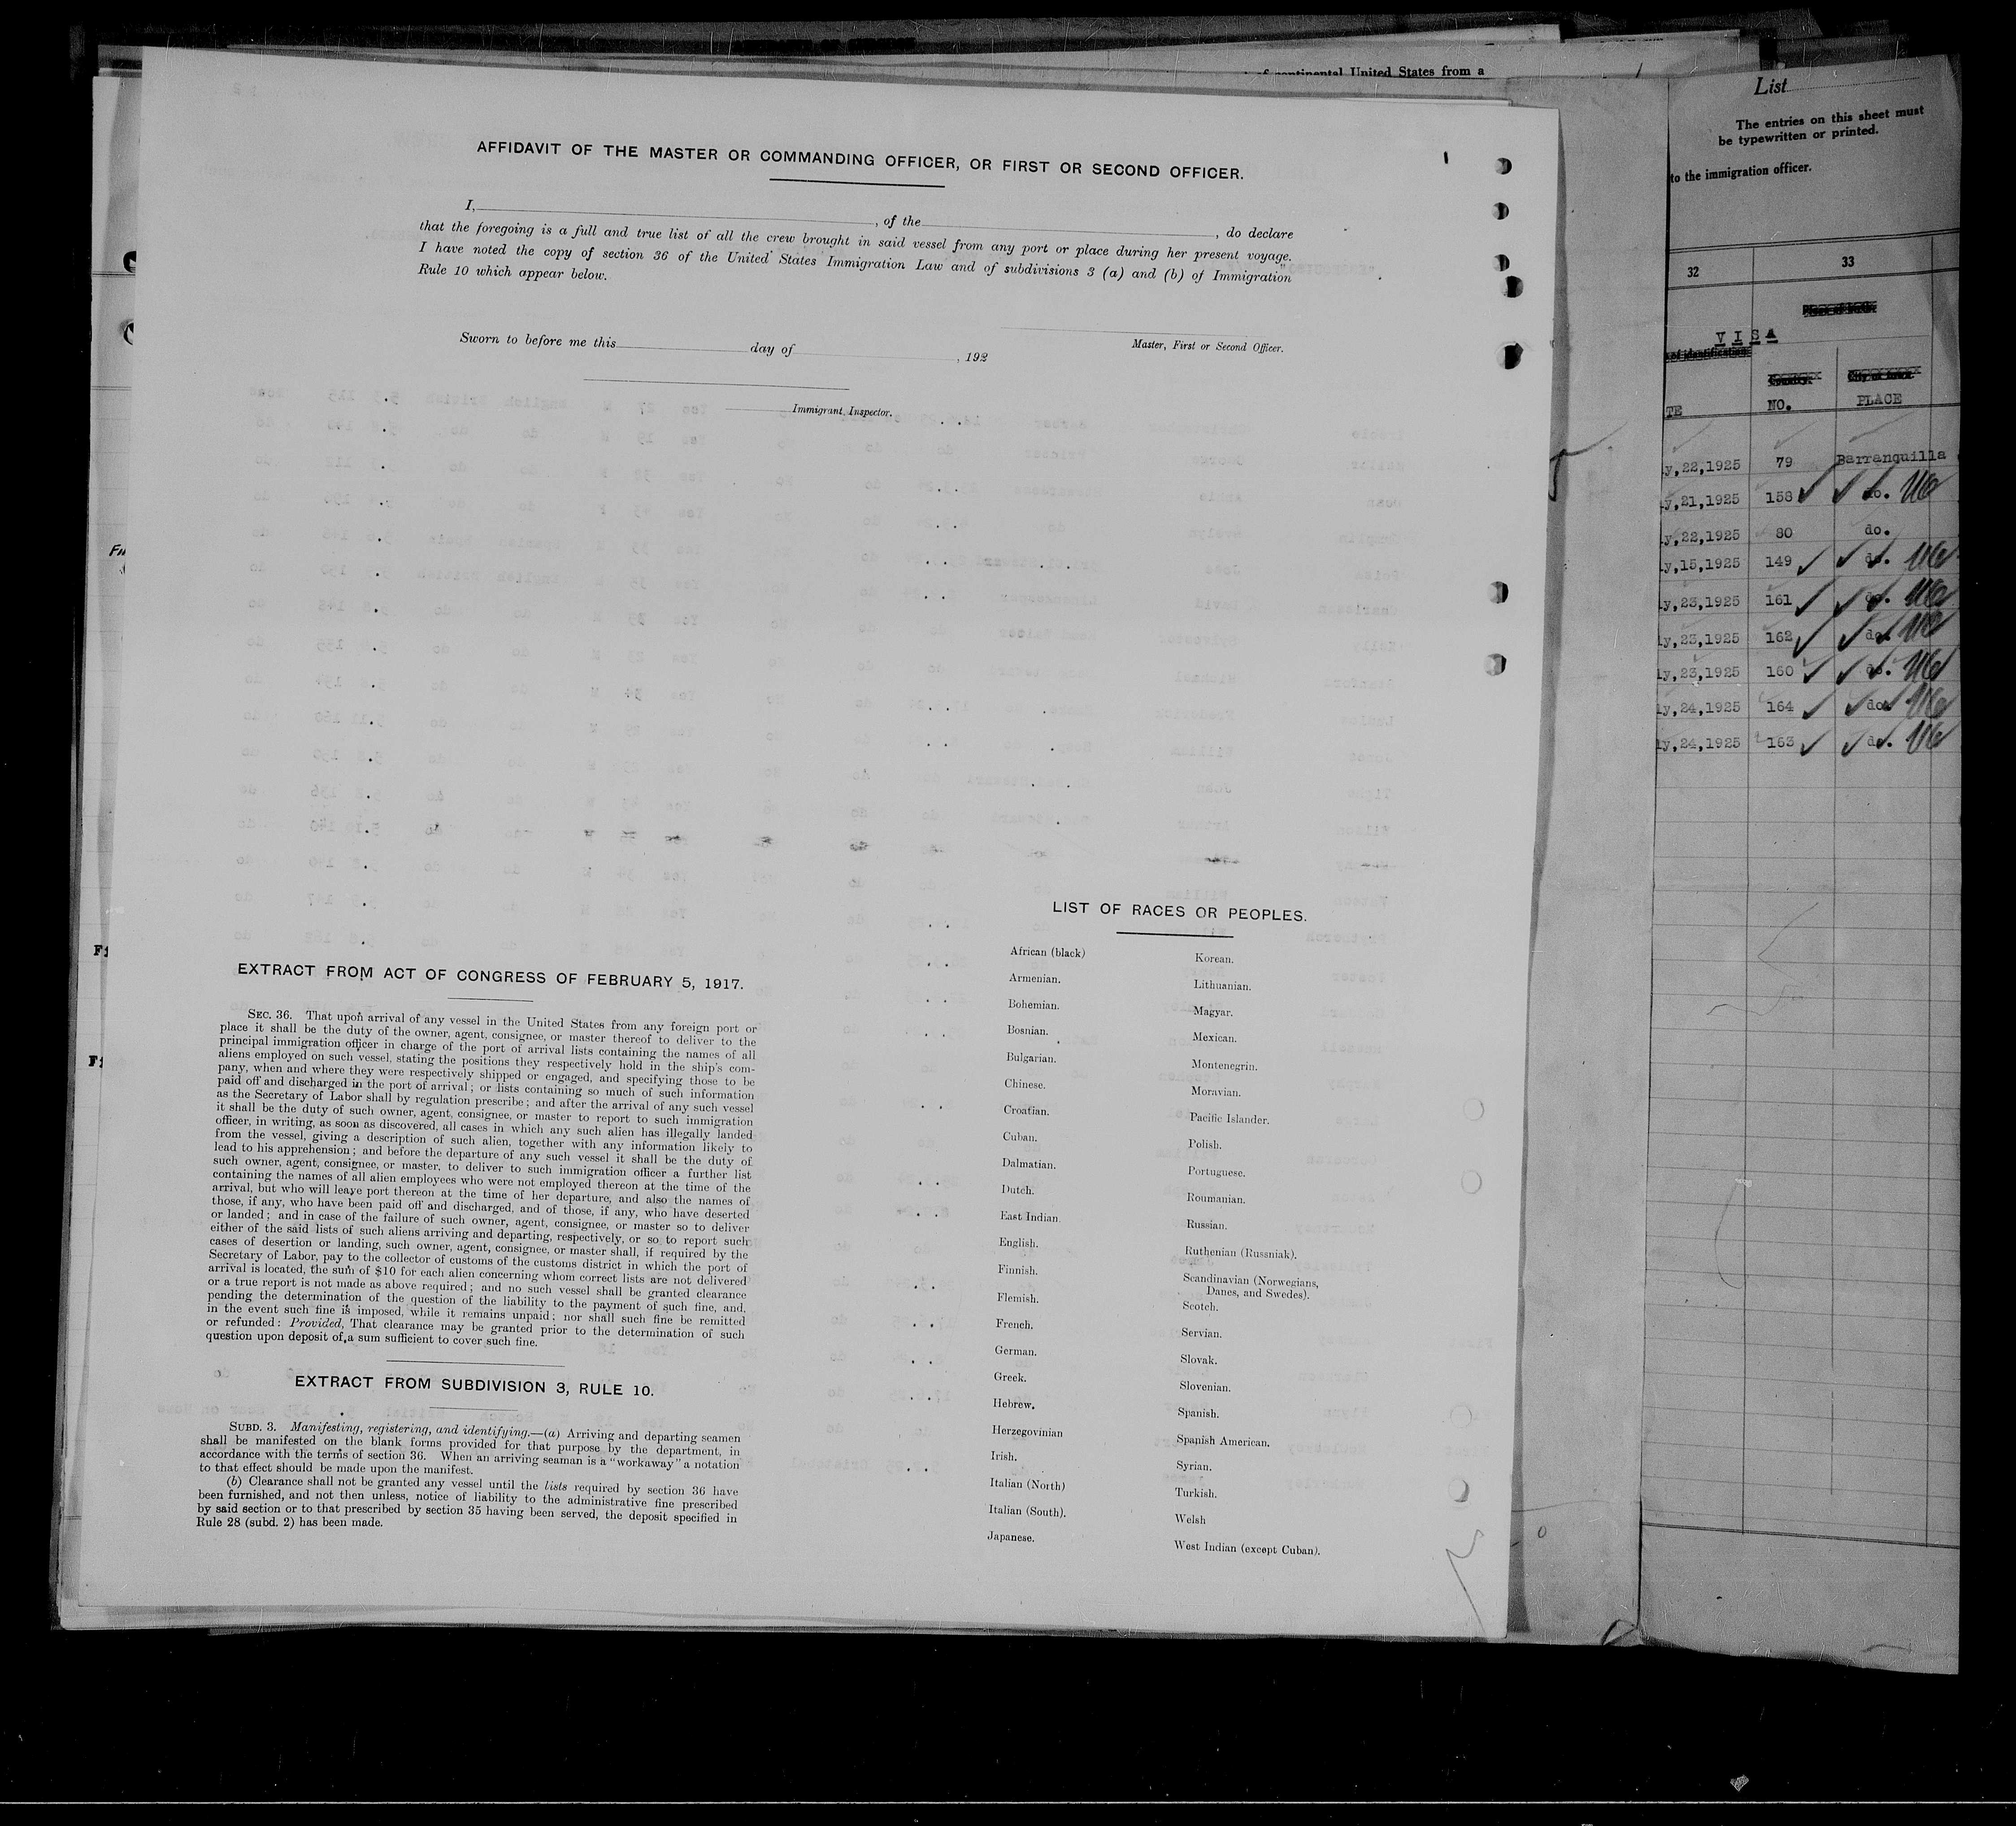 of continental United States from a
AFFIDAVIT OF THE MASTER OR COMMANDING OFFICER, OR FIRST OR SECOND OFFICER.
I, , of the , do declare
that the foregoing is a full and true list of all the crew brought in said vessel from any port or place during her present voyage.
I have noted the copy of section 36 of the United States Immigration Law and of subdivisions 3 (a) and (b) of Immigration
Rule 10 which appear below.
Sworn to before me this day of , 192
Master, First or Second Officer.
Immigrant Inspector.
EXTRACT FROM ACT OF CONGRESS OF FEBRUARY 5, 1917.
SEC. 36. That upon arrival of any vessel in the United States from any foreign port or
place it shall be the duty of the owner, agent, consignee, or master thereof to deliver to the
principal immigration officer in charge of the port of arrival lists containing the names of all
aliens employed on such vessel, stating the positions they respectively hold in the ship's com-
pany, when and where they were respectively shipped or engaged, and specifying those to be
paid off and discharged in the port of arrival; or lists containing so much of such information
as the Secretary of Labor shall by regulation prescribe; and after the arrival of any such vessel
it shall be the duty of such owner, agent, consignee, or master to report to such immigration
officer, in writing, as soon as discovered, all cases in which any such alien has illegally landed
from the vessel, giving a description of such alien, together with any information likely to
lead to his apprehension; and before the departure of any such vessel it shall be the duty of
such owner, agent, consignee, or master, to deliver to such immigration officer a further list
containing the names of all alien employees who were not employed thereon at the time of the
arrival, but who will leave port thereon at the time of her departure, and also the names of
those, if any, who have been paid off and discharged, and of those, if any, who have deserted
or landed; and in case of the failure of such owner, agent, consignee, or master so to deliver
either of the said lists of such aliens arriving and departing, respectively, or so to report such
cases of desertion or landing, such owner, agent, consignee, or master shall, if required by the
Secretary of Labor, pay to the collector of customs of the customs district in which the port of
arrival is located, the sum of $10 for each alien concerning whom correct lists are not delivered
or a true report is not made as above required; and no such vessel shall be granted clearance
pending the determination of the question of the liability to the payment of such fine, and,
in the event such fine is imposed, while it remains unpaid; nor shall such fine be remitted
or refunded: Provided, That clearance may be granted prior to the determination of such
question upon deposit of a sum sufficient to cover such fine.
EXTRACT FROM SUBDIVISION 3, RULE 10.
SUBD. 3. Manifesting, registering, and identifying.—(a) Arriving and departing seamen
shall be manifested on the blank forms provided for that purpose by the department, in
accordance with the terms of section 36. When an arriving seaman is a "workaway" a notation
to that effect should be made upon the manifest.
(b) Clearance shall not be granted any vessel until the lists required by section 36 have
been furnished, and not then unless, notice of liability to the administrative fine prescribed
by said section or to that prescribed by section 35 having been served, the deposit specified in
Rule 28 (subd. 2) has been made.
LIST OF RACES OR PEOPLES.
African (black)
Armenian.
Bohemian.
Bosnian.
Bulgarian.
Chinese.
Croatian.
Cuban.
Dalmatian.
Dutch.
East Indian.
English.
Finnish.
Flemish.
French.
German.
Greek.
Hebrew.
Herzegovinian
Irish.
Italian (North)
Italian (South).
Japanese.
Korean.
Lithuanian.
Magyar.
Mexican.
Montenegrin.
Moravian.
Pacific Islander.
Polish.
Portuguese.
Roumanian.
Russian.
Ruthenian (Russniak).
Scandinavian (Norwegians,
Danes, and Swedes).
Scotch.
Servian.
Slovak.
Slovenian.
Spanish.
Spanish American.
Syrian.
Turkish.
Welsh
West Indian (except Cuban).
List
The entries on this sheet must
be typewritten or printed.
to the immigration officer.
32 33
Place of birth.
VISA
of identification
Country. City or town.
TE NO. PLACE
y,22,1925 79 Barranquilla
y,21,1925 158 do.
y,22,1925 80 do.
y,15,1925 149 do.
y,23,1925 161 do.
y,23,1925 162 do.
y,23,1925 160 do.
y,24,1925 164 do.
y,24,1925 163 do.